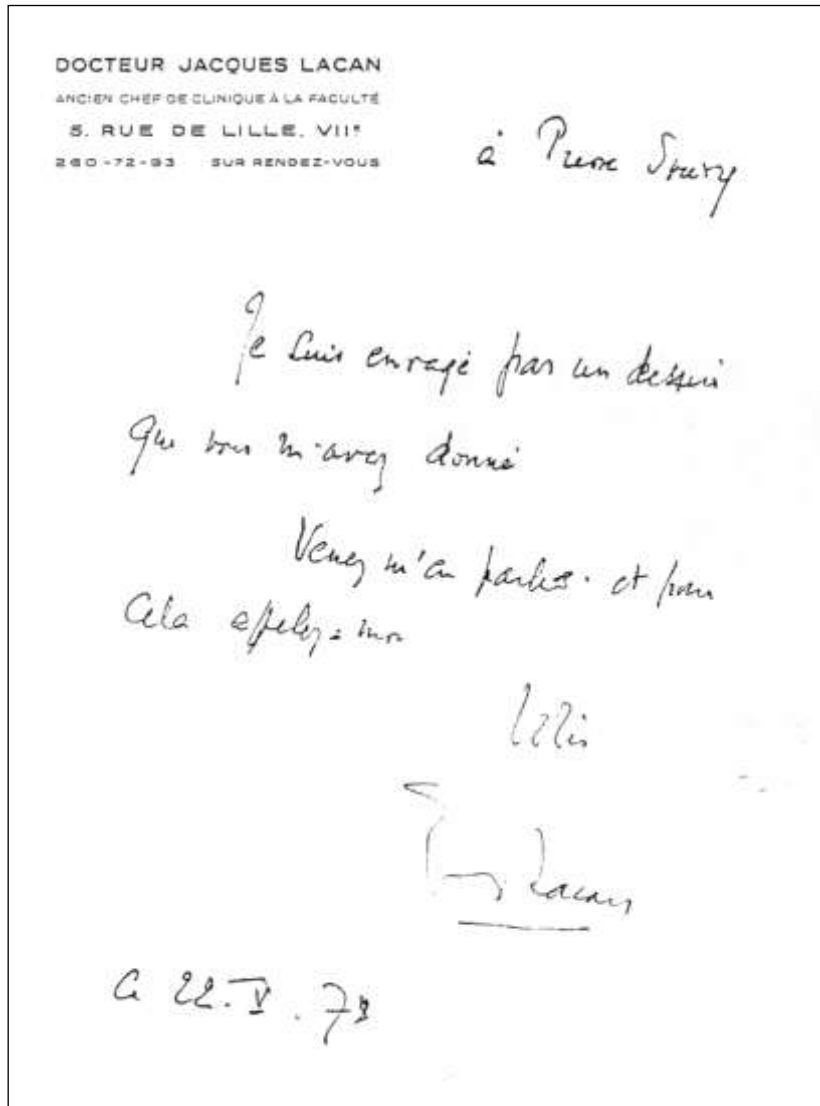 DOCTEUR JACQUES LACAN
ANCIEN CHEF DE CLINIQUE À LA FACULTÉ
5, RUE DE LILLE, VIIᵉ
260-72-93 SUR RENDEZ-VOUS
à Pierre Soury
Je suis enragé par un dessin
que vous m'avez donné
Venez m'en parler. et pour
cela appelez-moi
Lacan
Ce 22.V.